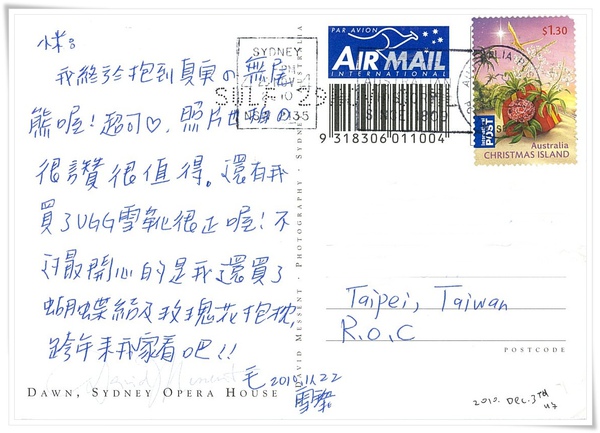 我終於抱到真實の無尾
熊喔！超可♡，照片也拍の
很讚很值得。還有我
買了UGG雪靴很正喔！不
過最開心的是我還買了
蝴蝶結及玫瑰花抱枕，
跨年來我家看吧！！
毛 2010.11.22
雪梨
DAWN, SYDNEY OPERA HOUSE
DAVID MESSENT PHOTOGRAPHY · SYDNEY · AUSTRALIA
SYDNEY
PAR AVION
AIR MAIL
INTERNATIONAL
9318306011004
$1.30
Australia
CHRISTMAS ISLAND
POST
Taipei, Taiwan
R.O.C
POSTCODE
2010. DEC. 3rd